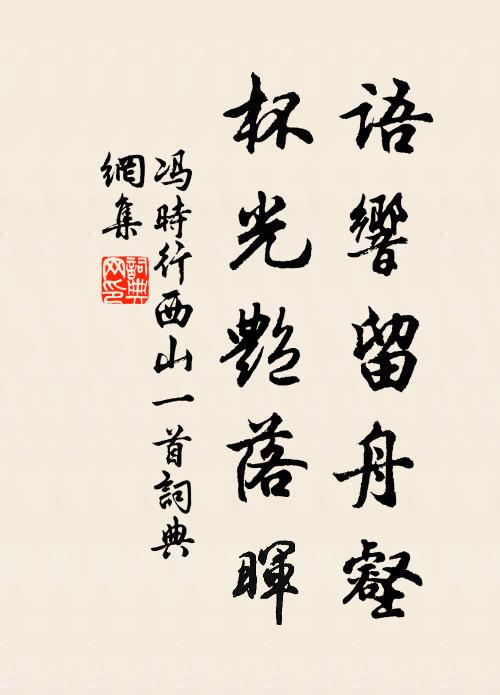 語響留舟壑
杯光艷落暉
冯時行西山一首詞典
網集
詞典
网印